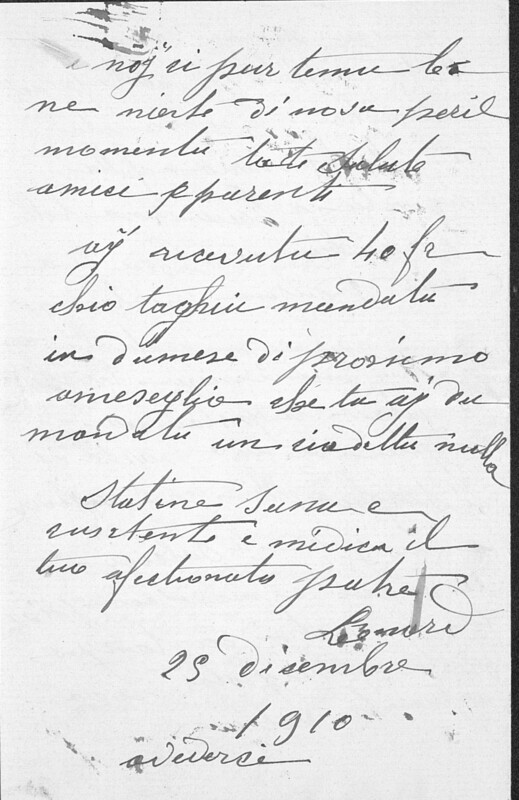 noÿ si par temu be
ne niente di nosa peril
momentu tate salute
amice e parente
aÿ recevutu 40 fr
chio taghiu mandatu
in du mese di prossimo
ameseglio che tu aÿ du
mandatu un ciadettu nulla
Statine sanu e
cuntentu e midica il
tuo afectionatu patre
Leonard
25 dicembre
1910
avedersi